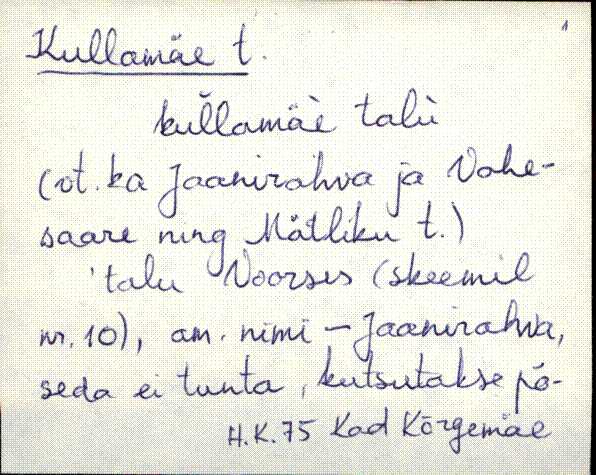 1
Kullamäe t.
kul̆lamäè talù
(vt. ka Jaanirahva ja Vahe-
saare ning Mätliku t.)
'talu Voorses (skeemil
nr. 10), am. nimi – Jaanirahva,
seda ei tunta, kutsutakse põ-
H.K. 75 Kad Kõrgemäe